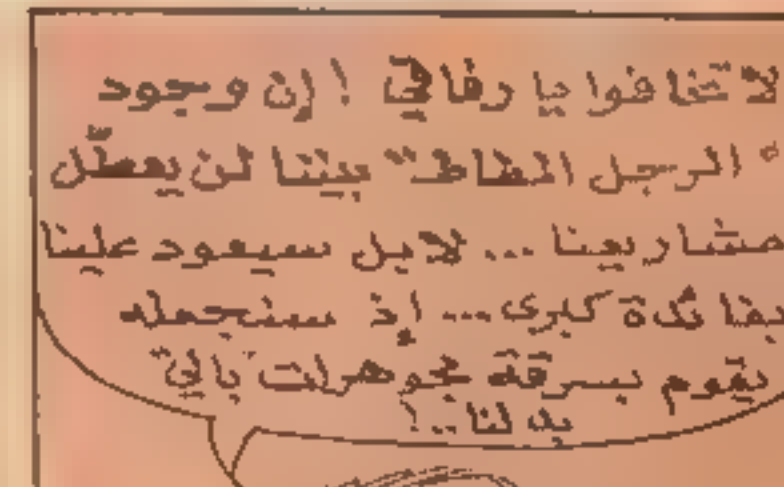 لا تخافوا يا رفاقي ! إن وجود
" الرجل المطاط " بيننا لن يعطّل
مشاريعنا ... لا بل سيعود علينا
بفائدة كبرى ... إذ سنجعله
يقوم بسرقة مجوهرات بالي
بدلنا .. !